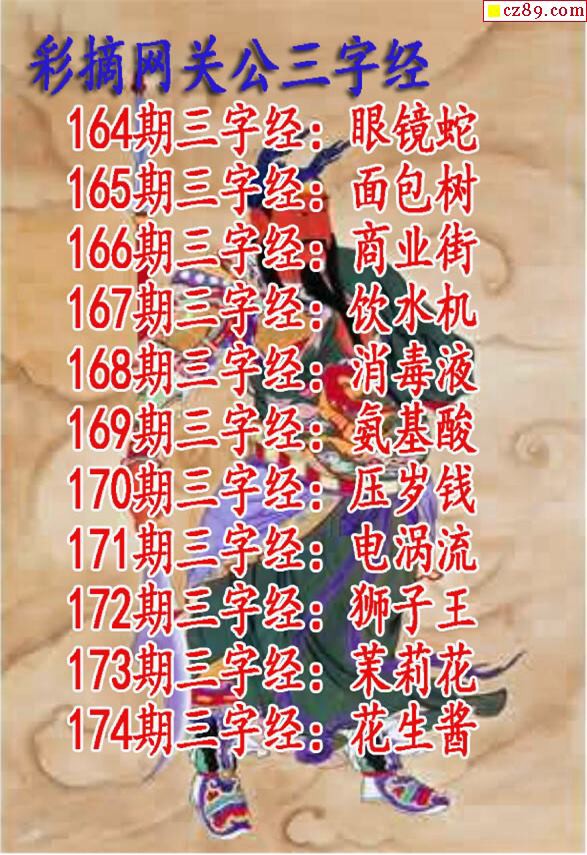 cz89.com
彩摘网关公三字经
164期三字经：眼镜蛇
165期三字经：面包树
166期三字经：商业街
167期三字经：饮水机
168期三字经：消毒液
169期三字经：氨基酸
170期三字经：压岁钱
171期三字经：电涡流
172期三字经：狮子王
173期三字经：茉莉花
174期三字经：花生酱